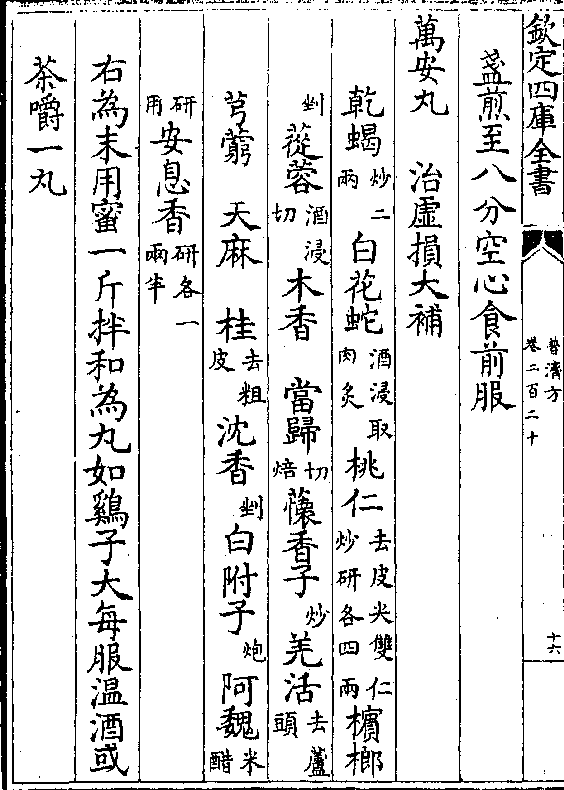 欽定四庫全書
普濟方
卷二百二十
十六
盞煎至八分空心食前服
萬安丸 治虛損大補
乾蝎炒二兩 白花蛇酒浸取肉炙 桃仁去皮尖雙仁炒研各四兩 檳榔
剉 蓯蓉酒浸切 木香 當歸切焙 蘹香子炒 羌活去蘆頭
芎藭 天麻 桂去粗皮 沈香剉 白附子炮 阿魏米醋
研用 安息香研各一兩半
右為末用蜜一斤拌和為丸如鷄子大每服温酒或
茶嚼一丸